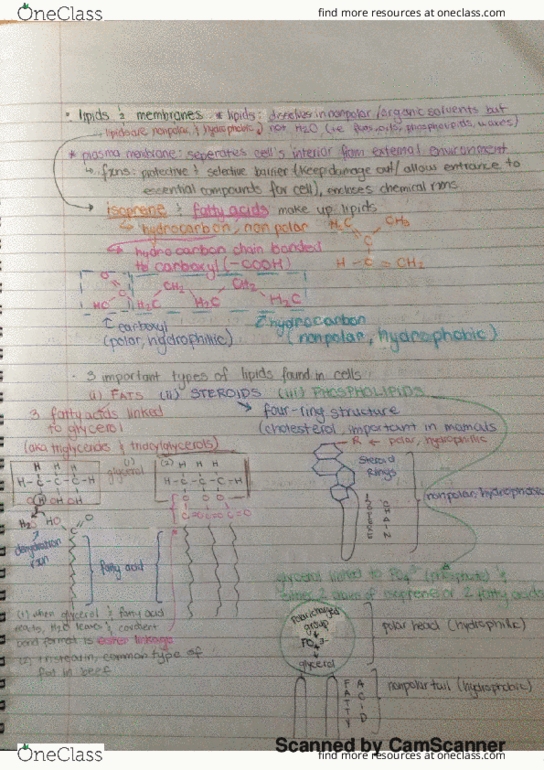 OneClass
find more resources at oneclass.com
• lipids & membranes * lipids: dissolves in nonpolar/organic solvents but
lipids are nonpolar & hydrophobic not H2O (i.e. fats, oils, phospholipids, waxes)
* plasma membrane: seperates cell's interior from external environment
↳ fxns: protective & selective barrier (keep damage out/ allow entrance to
essential compounds for cell), encloses chemical rxns
isoprene & fatty acids make up lipids
↳ hydrocarbon, nonpolar
H3C CH3
C
H - C = CH2
↳ hydrocarbon chain bonded
to carboxyl (-COOH)
O
HO C H2C CH2 H2C CH2 H2C
carboxyl
(polar, hydrophilic)
hydrocarbon
(nonpolar, hydrophobic)
- 3 important types of lipids found in cells
(i) FATS (ii) STEROIDS (iii) PHOSPHOLIPIDS
3 fatty acids linked
to glycerol
(aka triglycerides & triacylglycerols)
→ four-ring structure
(cholesterol, important in mamals
R ← polar, hydrophilic
steroid
rings
ISOPRENE
CHAIN
nonpolar, hydrophobic
(1)
H H H
H-C-C-C-H
O OH OH
glycerol
(2)
H H H
H-C-C-C-H
O O O
C=O C=O C=O
H2O HO C O
dehydration
rxn
fatty acid
(1) when glycerol & fatty acid
reacts, H2O leaves & covalent
bond formed is ester linkage
(2) tristearin, common type of
fat in beef
glycerol linked to PO4 (phosphate) &
either 2 chains of isoprene or 2 fatty acids
polar/charged
group
PO4
glycerol
polar head (hydrophilic)
FATTY
ACID
nonpolar tail (hydrophobic)
Scanned by CamScanner
OneClass
find more resources at oneclass.com